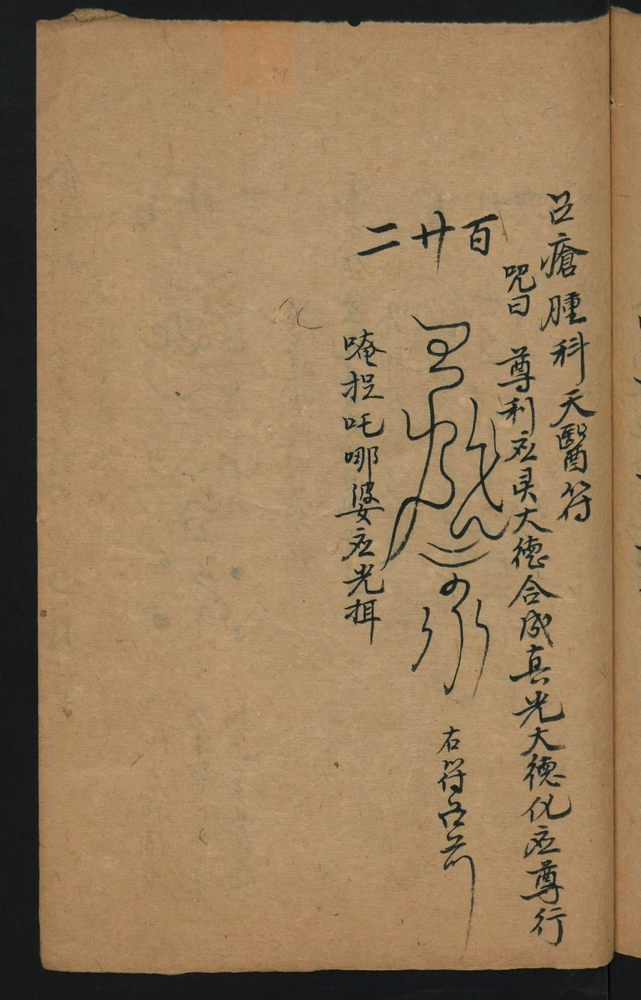 召瘡腫科天醫符
咒曰 尊利应灵大德合成真光大德化应尊行
百廿二
右符召前
唵捏吒哪婆应光揖